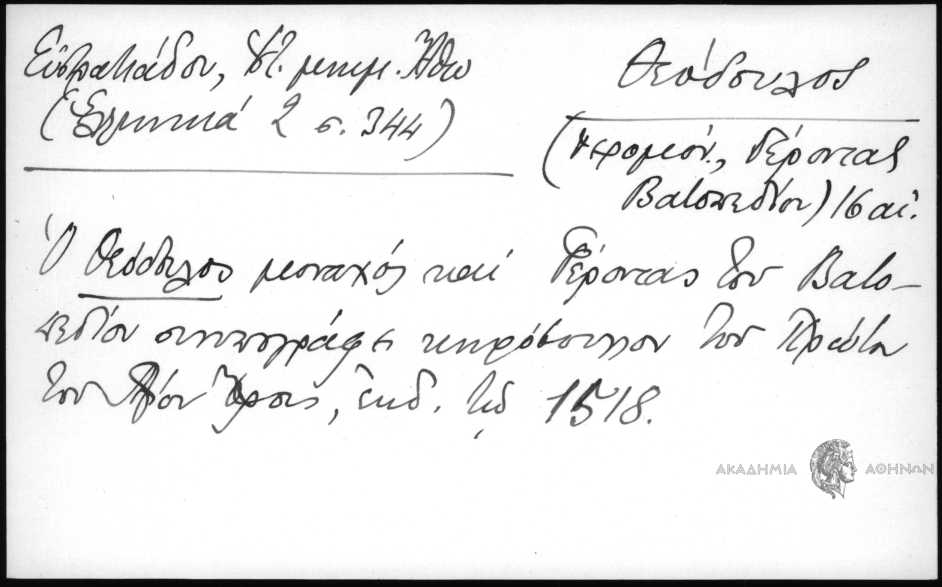 Εὐστρατιάδου, Ἱστ. μνημ. Ἄθω
(Ἑλληνικά 2 σ. 344)
Θεόδουλος
(ἱερομόν., Γέροντας
Βατοπεδίου) 16 αἰ.
Ὁ Θεόδουλος μοναχός καί Γέροντας τοῦ Βατο-
πεδίου συνυπογράφει κηρόβουλλον τοῦ Πρώτου
τοῦ Ἁγίου Ὄρους, ἐκδ. τῷ 1518.
ΑΚΑΔΗΜΙΑ ΑΘΗΝΩΝ